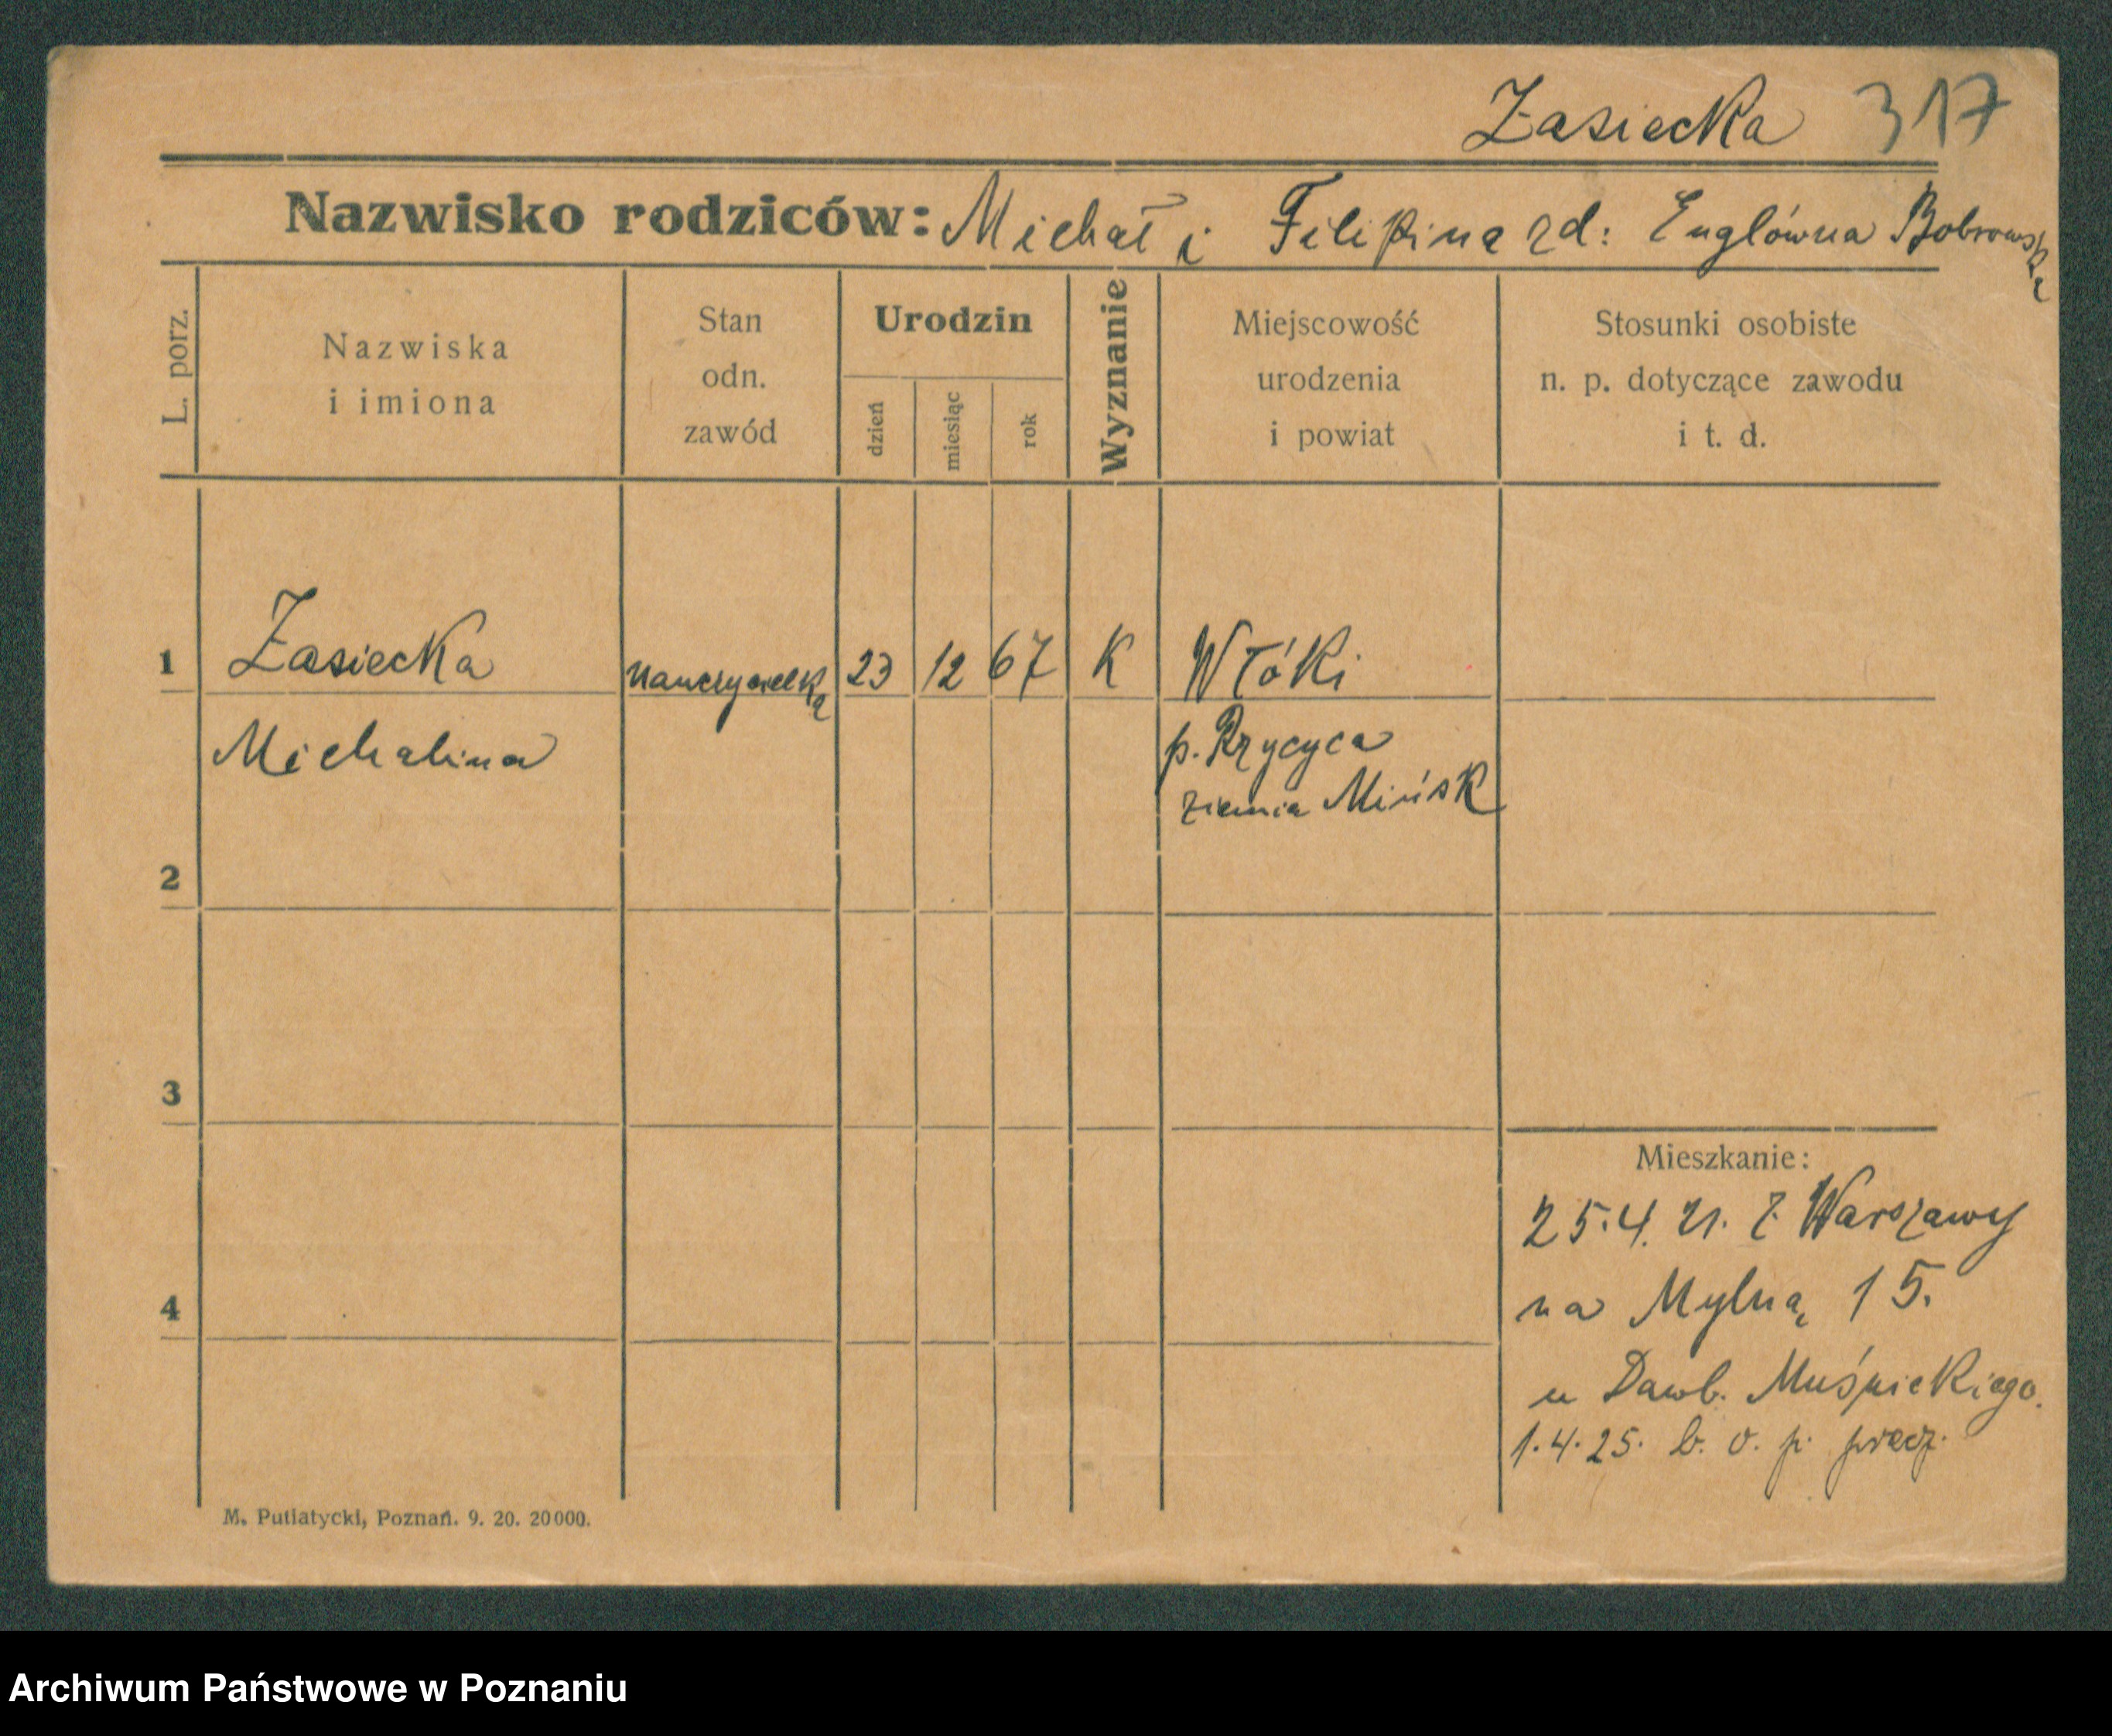 Zasiecka 317
Nazwisko rodziców: Michał i Filipina zd: Englówna Bobrowska
L. porz.
Nazwiska
i imiona
Stan
odn.
zawód
Urodzin
dzień
miesiąc
rok
Wyznanie
Miejscowość
urodzenia
i powiat
Stosunki osobiste
n. p. dotyczące zawodu
i t. d.
1 Zasiecka nauczycielka 23 12 67 K Włóki
Michalina p. Rzycyca
ziemia Mińsk
2
3
4
Mieszkanie:
25.4.21. z Warszawy
na Mylną 15.
u Dowb. Muśnickiego.
1.4.25. b. o. p.
M. Putiatycki, Poznań. 9. 20. 20000.
Archiwum Państwowe w Poznaniu